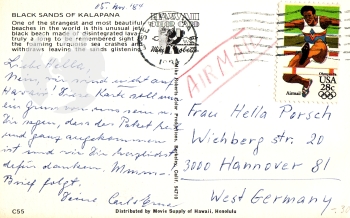 05. Nov. '84
BLACK SANDS OF KALAPANA
One of the strangest and most beautiful
beaches in the world is this unusual jet
black beach made of disintegrated lava.
Truly a long to be remembered sight as
the foaming turquoise sea crashes and
withdraws leaving the sands glistening.
Liebe Hella,
Nun sind wir auf
Hawaii! Die Karte soll nur
ein Gruss sein um
zu sagen, dass das Paket heil
und ganz angekommen
ist und wir Dir herzlichst
dafür danken.
Brief folgt.
Deine
C55
Distributed by Movie Supply of Hawaii, Honolulu
Mike Roberts Color Productions, Berkeley, Calif. 94710
HAWAII
AIRMAIL
USA
28c
Airmail
Frau Hella Porsch
Wichberg str. 20
3000 Hannover 81
West Germany